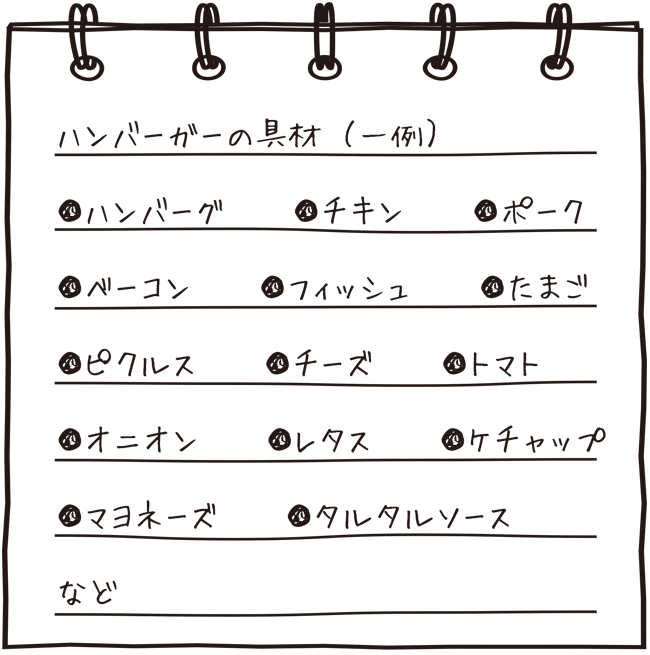 ハンバーガーの具材（一例）
●ハンバーグ ●チキン ●ポーク
●ベーコン ●フィッシュ ●たまご
●ピクルス ●チーズ ●トマト
●オニオン ●レタス ●ケチャップ
●マヨネーズ ●タルタルソース
など